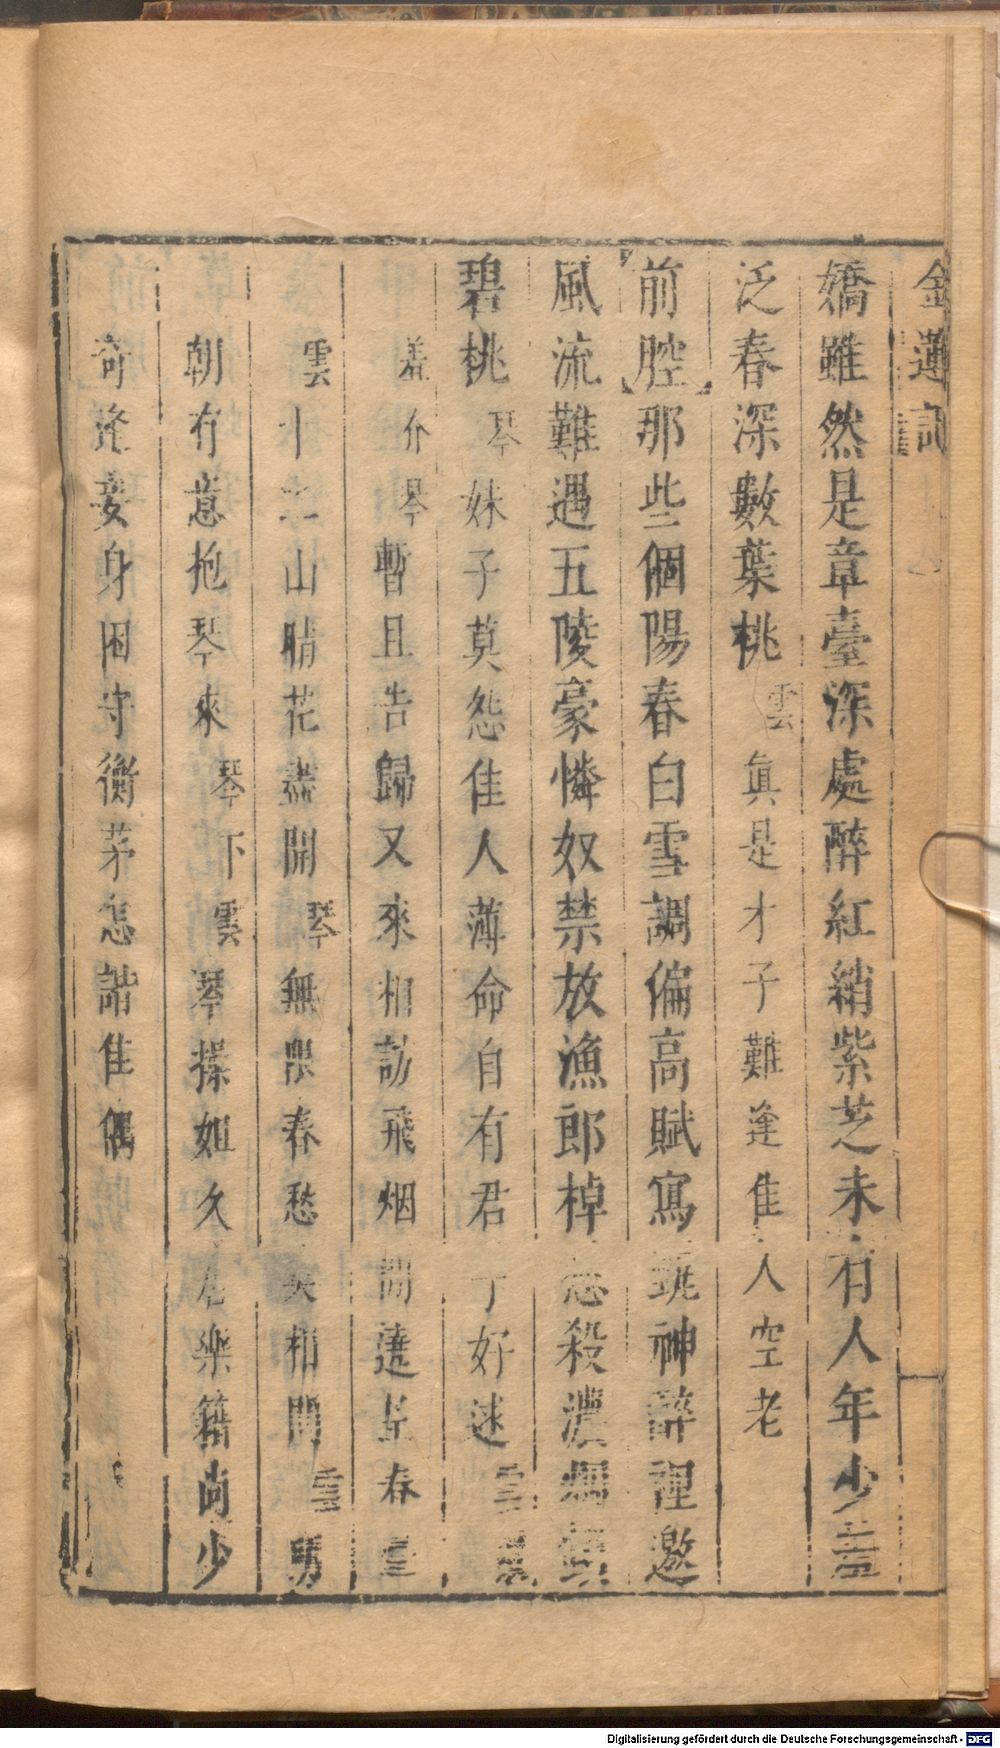 金蓮記
嬌雖然是章臺深處醉紅綃紫芝未有人年少羞
泛春深數葉桃雲眞是才子難逢佳人空老
前腔那些個陽春白雪調偏高賦寫就神辭裡邀
風流難遇五陵豪憐奴禁放漁郎棹惹殺濃烟鎖
碧桃琴妹子莫怨佳人薄命自有君子好逑雲
羞介琴暫且告歸又來相訪飛烟閒遶呈春臺
雲十二山晴花盡開琴無限春愁莫相問雲
朝有意抱琴來琴下雲琴操如久居樂籍尚少
奇逢妾身困守衡茅怎諧佳偶
Digitalisierung gefördert durch die Deutsche Forschungsgemeinschaft - DFG